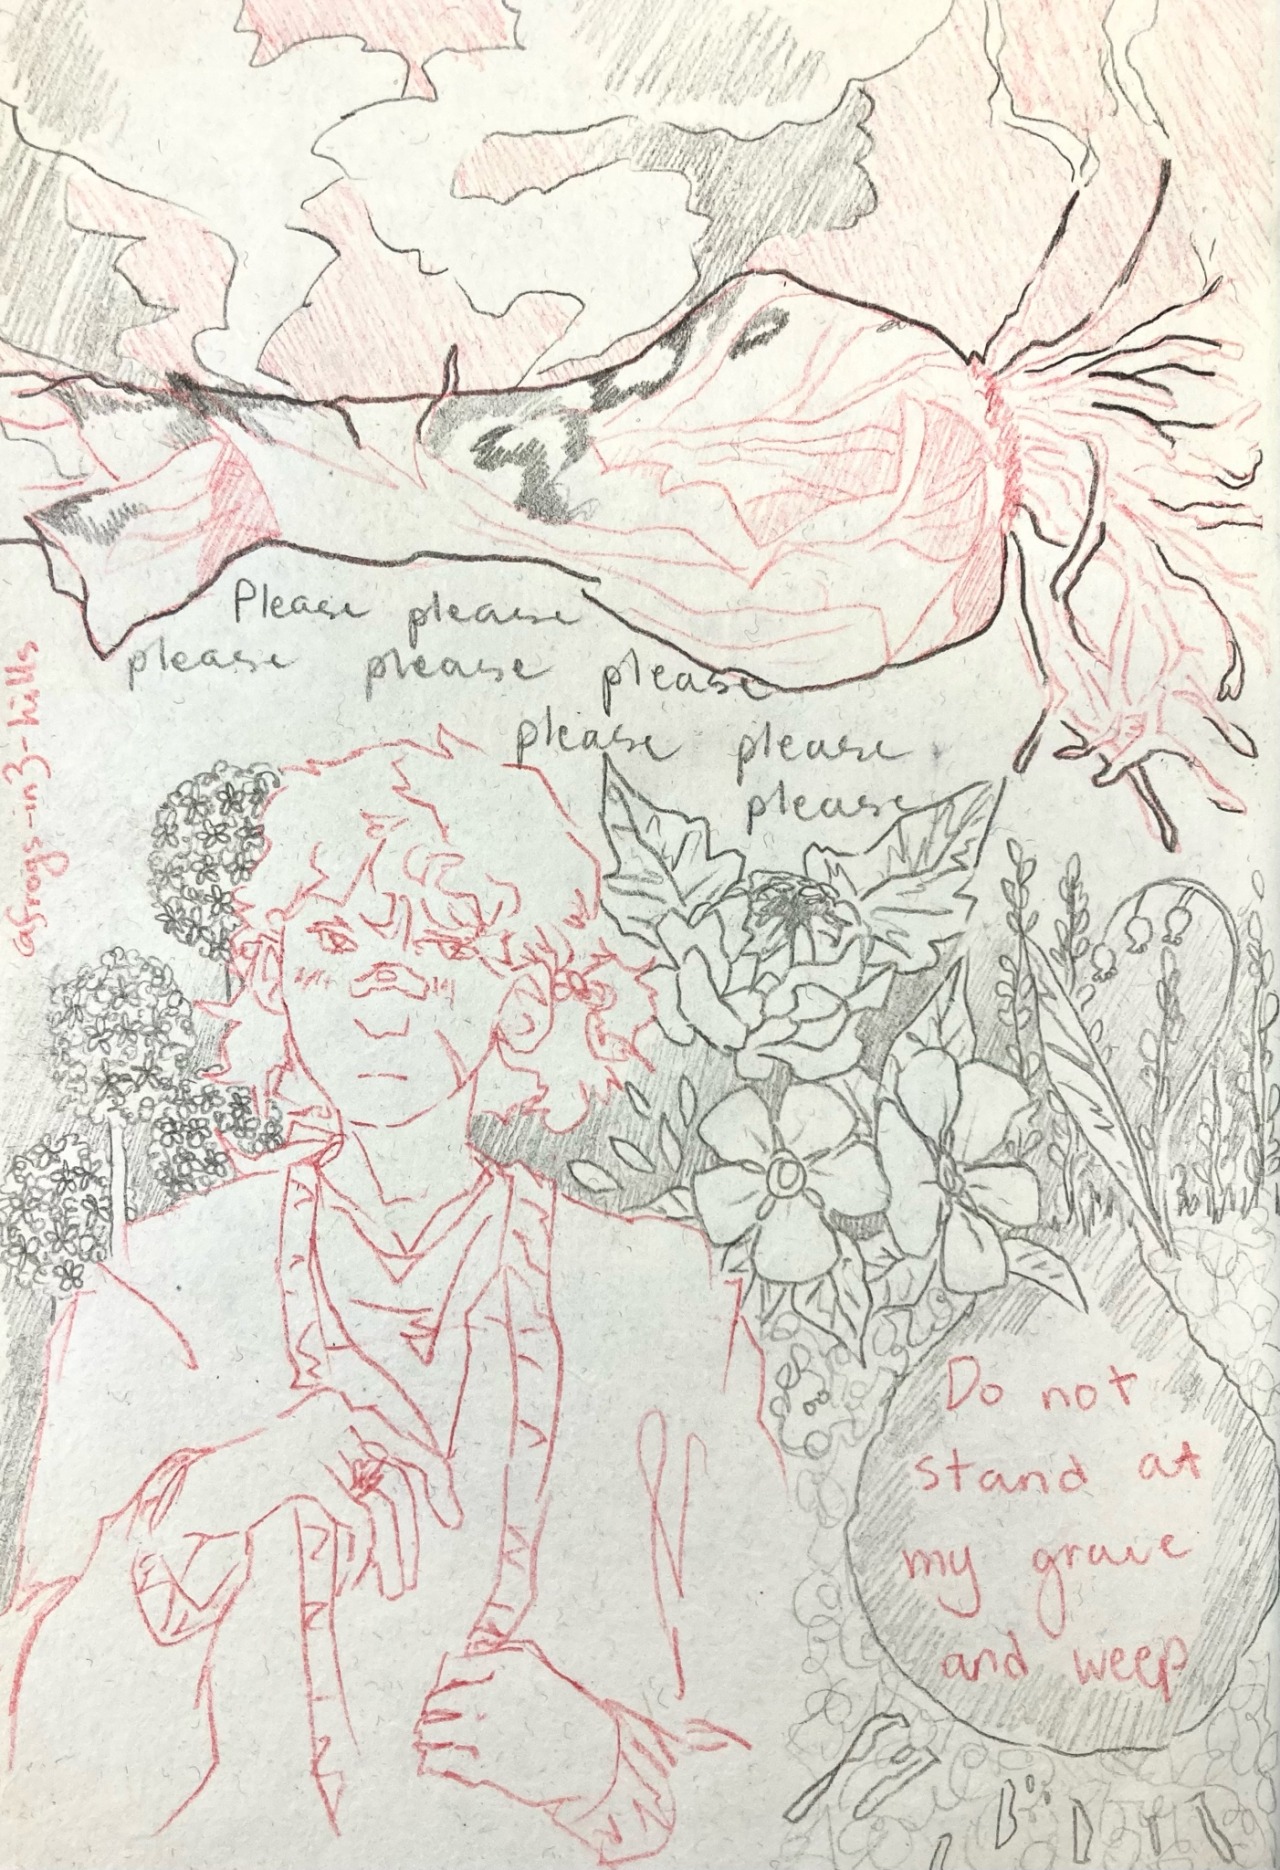 Please please
please please please
please please
please
afrogs-in3-hills
Do not
stand at
my grave
and weep